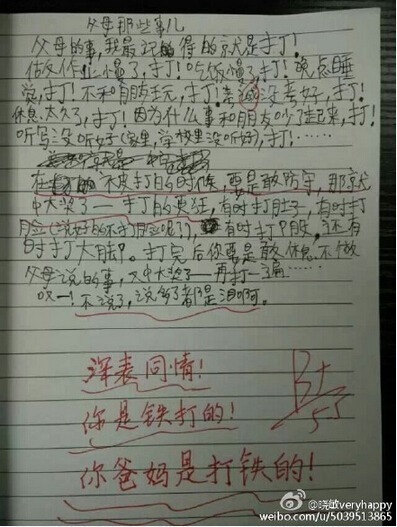 父母那些事儿
父母的事，我最记得的就是打！
做作业慢了，打！吃饭慢了，打！晚点睡
觉，打！不和朋友玩，打！考试没考好，打！
休息太久了，打！因为什么事和朋友吵了起来，打！
听写没听好（家里，学校里没听好），打！……
在 不被打的时候，要是敢防守，那就
中大奖了——打的更狂，有时打肚子，有时打
脸（说好的不打脸呢？），有时打P股，还有
时打大腿。打完后你要是敢休息不做
父母说的事，又中大奖了——再打一遍……
哎—！不说了，说多了都是泪啊。
深表同情！
你是铁打的！
你爸妈是打铁的！
B+
@晓敏veryhappy
weibo.com/u/5039513865